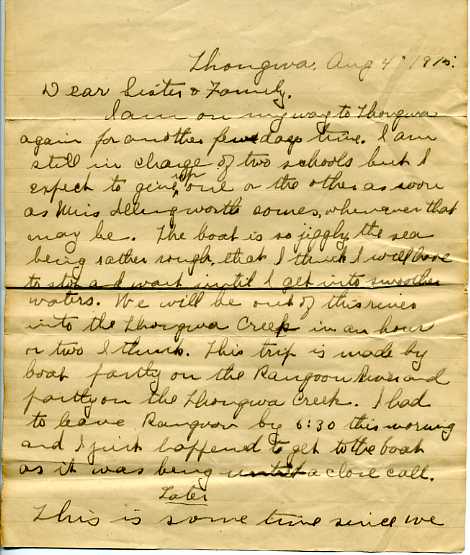 Thongwa, Aug 4" 1915.
Dear Sister & Family.
I am on my way to Thongwa
again for another few days time. I am
still in charge of two schools but I
expect to give up one or the other as soon
as Miss Illingworth comes, whenever that
may be. The boat is so jiggly, the sea
being rather rough, that I think I will have
to stop and wait until I get into smoother
waters. We will be out of this river
into the Thongwa Creek in an hour
or two I think. This trip is made by
boat partly on the Rangoon River and
partly on the Thongwa Creek. I had
to leave Rangoon by 6:30 this morning
and I just happened to get to the boat
as it was being a close call.
Later
This is some time since we